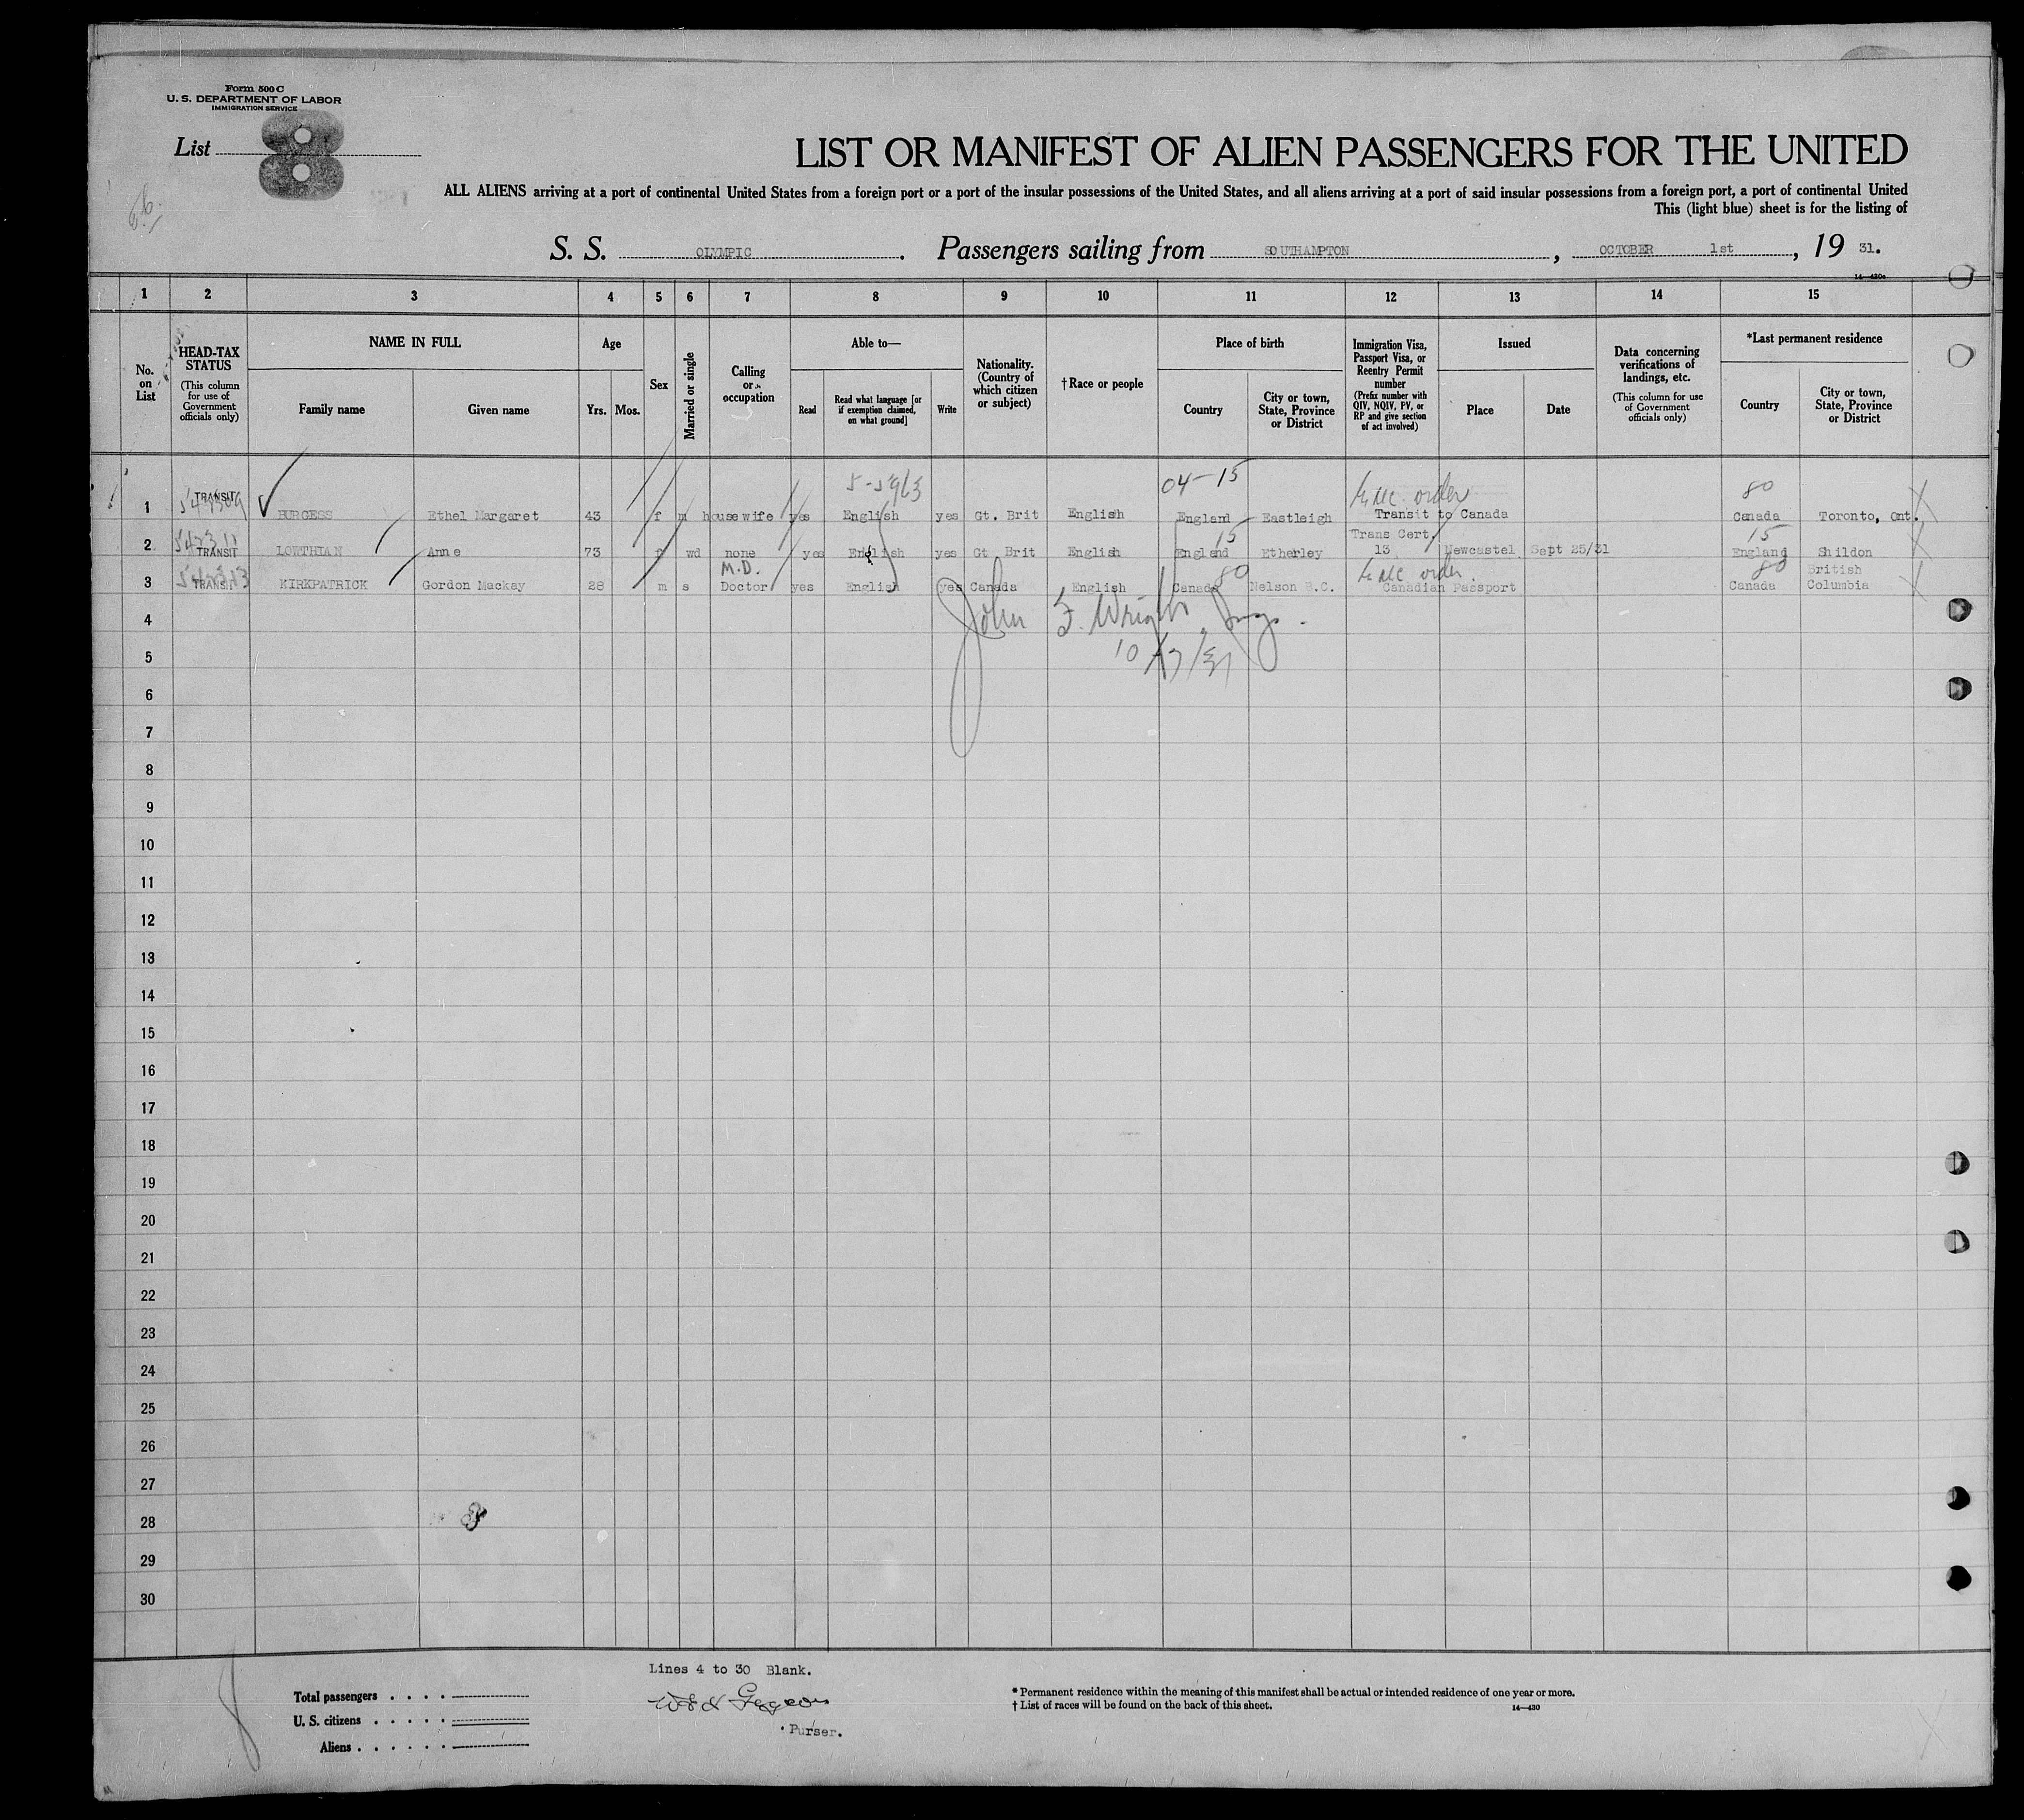 Form 500 C
U. S. DEPARTMENT OF LABOR
IMMIGRATION SERVICE
List 8
LIST OR MANIFEST OF ALIEN PASSENGERS FOR THE UNITED
ALL ALIENS arriving at a port of continental United States from a foreign port or a port of the insular possessions of the United States, and all aliens arriving at a port of said insular possessions from a foreign port, a port of continental United
This (light blue) sheet is for the listing of
S. S. OLYMPIC. Passengers sailing from SOUTHAMPTON, OCTOBER 1st, 19 31.
14—430a
1 2 3 4 5 6 7 8 9 10 11 12 13 14 15
No. on List
HEAD-TAX STATUS (This column for use of Government officials only)
NAME IN FULL
Family name Given name
Age
Yrs. Mos.
Sex
Married or single
Calling or occupation
Able to—
Read Read what language [or if exemption claimed, on what ground] Write
Nationality. (Country of which citizen or subject)
†Race or people
Place of birth
Country City or town, State, Province or District
Immigration Visa, Passport Visa, or Reentry Permit number (Prefix number with QIV, NQIV, PV, or RP and give section of act involved)
Issued
Place Date
Data concerning verifications of landings, etc. (This column for use of Government officials only)
*Last permanent residence
Country City or town, State, Province or District
04-15 order 80
1 TRANSIT BURGESS Ethel Margaret 43 f m housewife yes English yes Gt. Brit English England Eastleigh Transit to Canada Canada Toronto, Ont.
15 Trans Cert. 15
2 TRANSIT LOWTHIAN Anne 73 f wd none yes English yes Gt Brit English England Etherley 13 Newcastel Sept 25/31 England Shildon
M.D. 80 order. 80 British
3 TRANSIT KIRKPATRICK Gordon Mackay 28 m s Doctor yes English yes Canada English Canada Nelson B.C. Canadian Passport Canada Columbia
4 John F. Wright
5 10/7/31
6
7
8
9
10
11
12
13
14
15
16
17
18
19
20
21
22
23
24
25
26
27
28
29
30
Lines 4 to 30 Blank.
Total passengers
U. S. citizens
Aliens
Purser.
* Permanent residence within the meaning of this manifest shall be actual or intended residence of one year or more.
† List of races will be found on the back of this sheet.
14—430